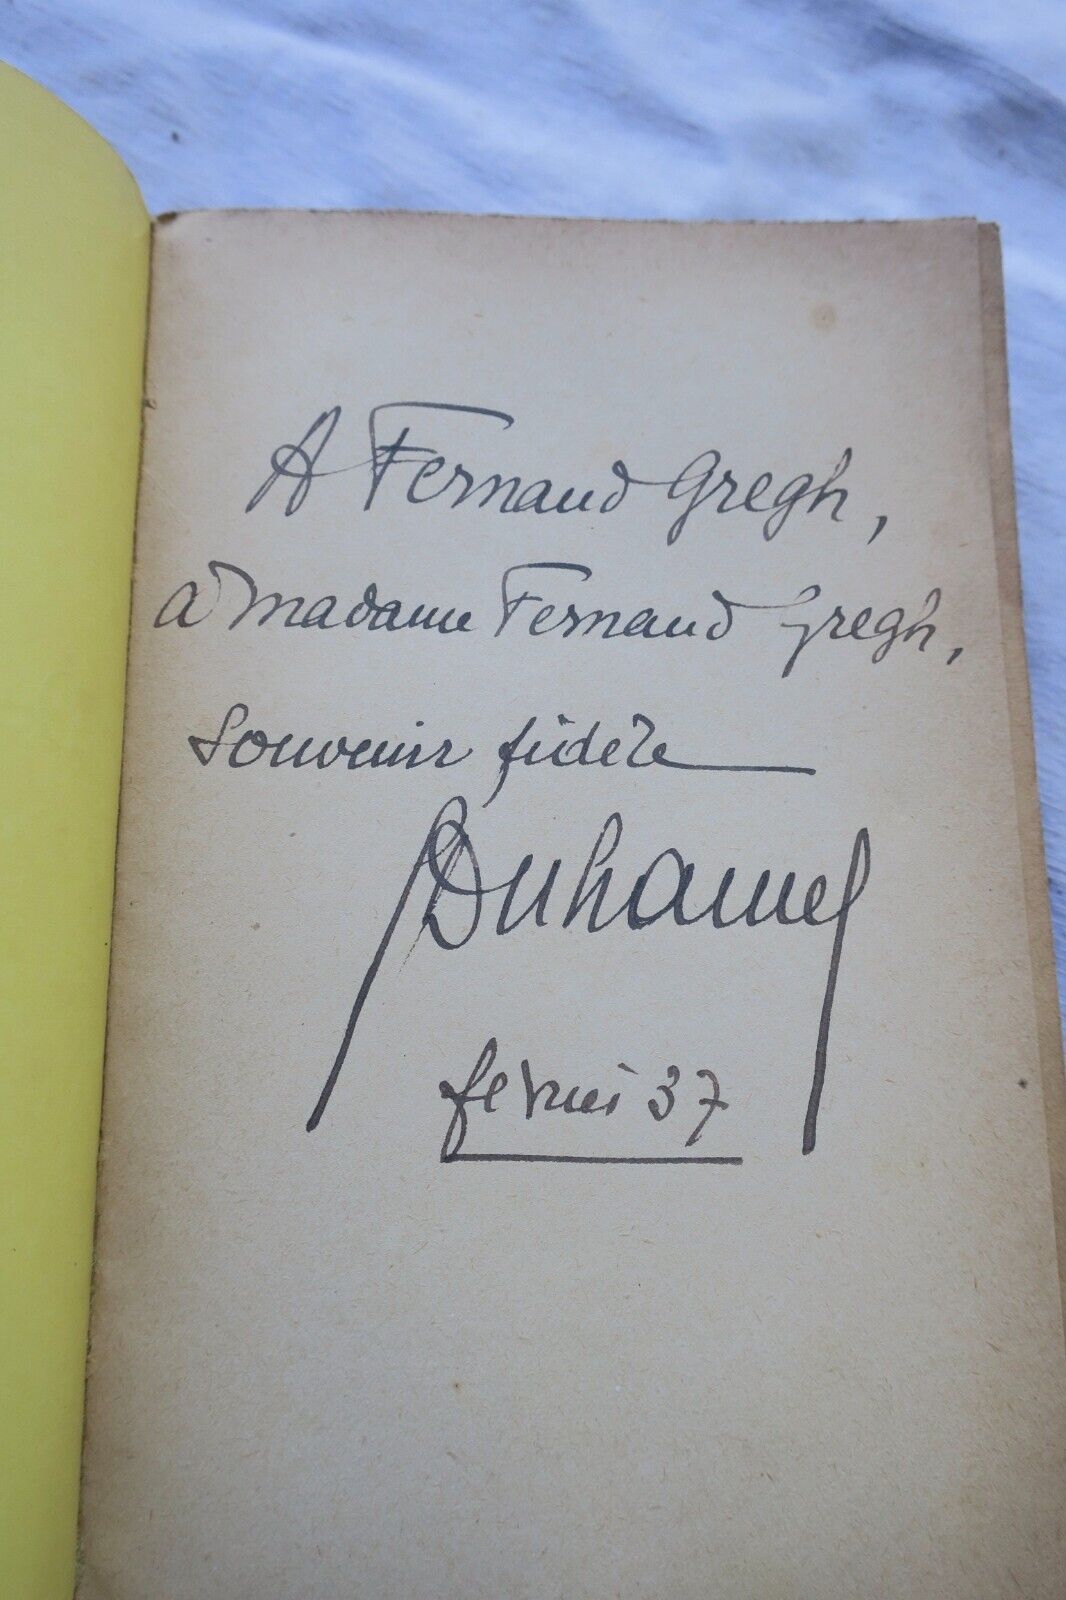 A Fernand Gregh,
à madame Fernand Gregh,
souvenir fidèle
Duhamel
fevrier 37